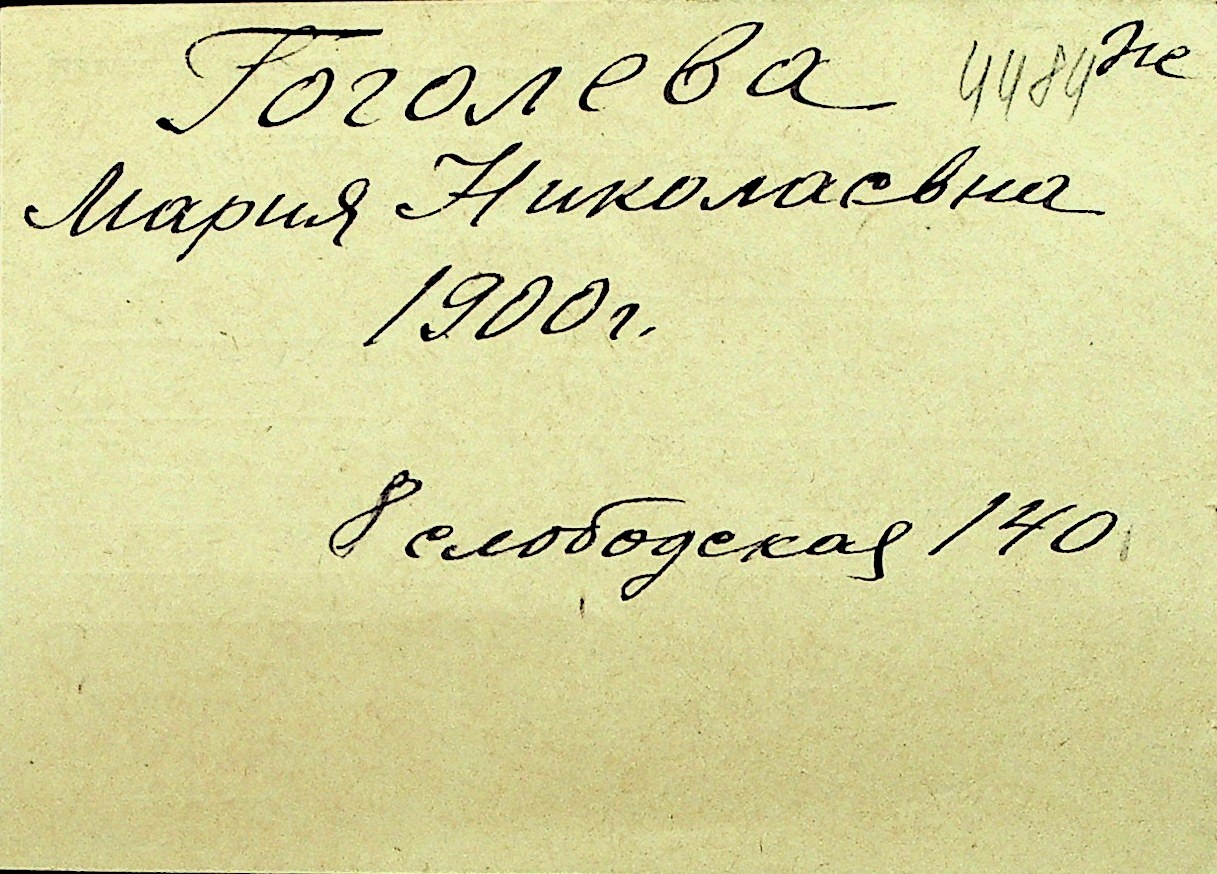 Гоголева 4484 же
Мария Николаевна
1900г.
8 слободская 140